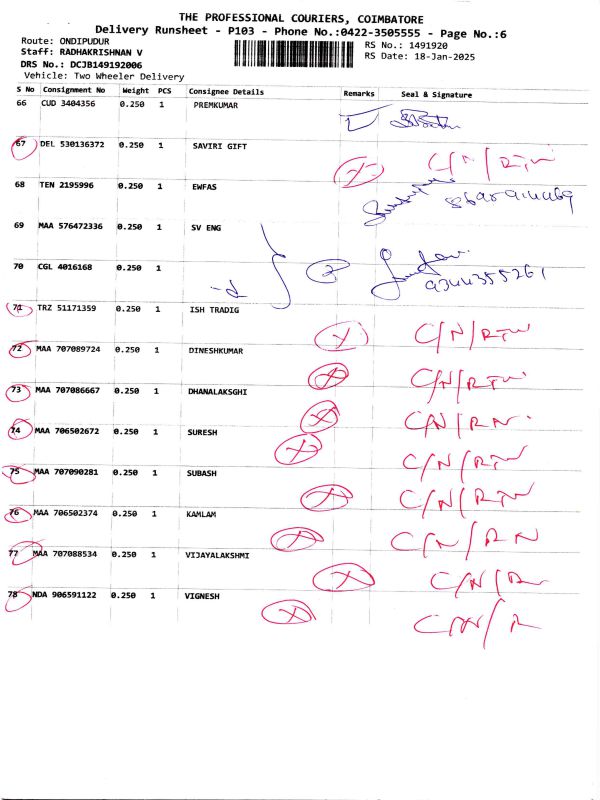 THE PROFESSIONAL COURIERS, COIMBATORE
Delivery Runsheet - P103 - Phone No.:0422-3505555 - Page No.:6
Route: ONDIPUDUR
RS No.: 1491920
Staff: RADHAKRISHNAN V
RS Date: 18-Jan-2025
DRS No.: DCJB149192006
Vehicle: Two Wheeler Delivery
S No Consignment No Weight PCS Consignee Details Remarks Seal & Signature
66 CUD 3404356 0.250 1 PREMKUMAR
67 DEL 530136372 0.250 1 SAVIRI GIFT
C/N/RTN
68 TEN 2195996 0.250 1 EWFAS
69 MAA 576472336 0.250 1 SV ENG
70 CGL 4016168 0.250 1
2
9344355261
71 TRZ 51171359 0.250 1 ISH TRADIG
X C/N/RTN
72 MAA 707089724 0.250 1 DINESHKUMAR
X C/N/RTN
73 MAA 707086667 0.250 1 DHANALAKSGHI
X C/N/RN.
74 MAA 706502672 0.250 1 SURESH
X C/N/RTN
75 MAA 707090281 0.250 1 SUBASH
X C/N/RTN
76 MAA 706502374 0.250 1 KAMLAM
X C/N/RN
77 MAA 707088534 0.250 1 VIJAYALAKSHMI
X C/N/R
78 NDA 906591122 0.250 1 VIGNESH
X C/N/R